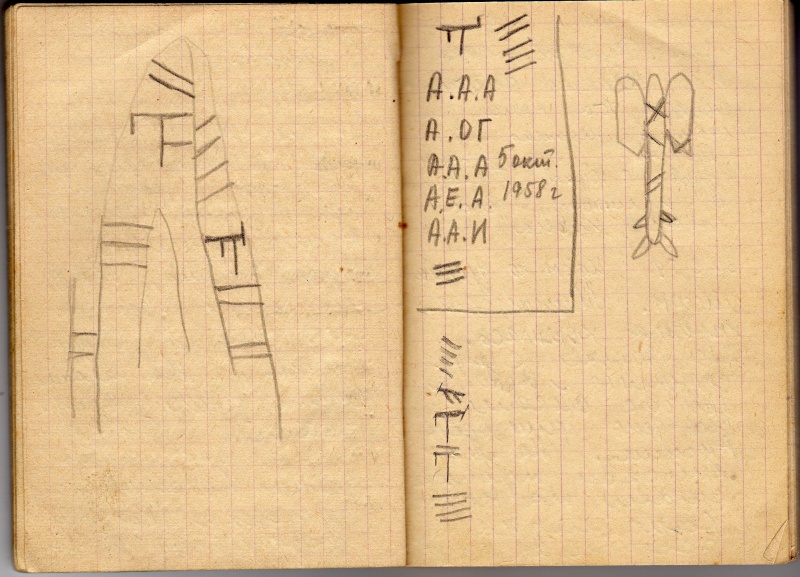 А.А.А
А.ОГ
А.А.А
А.Е.А.
А.А.И
5 окт.
1958 г